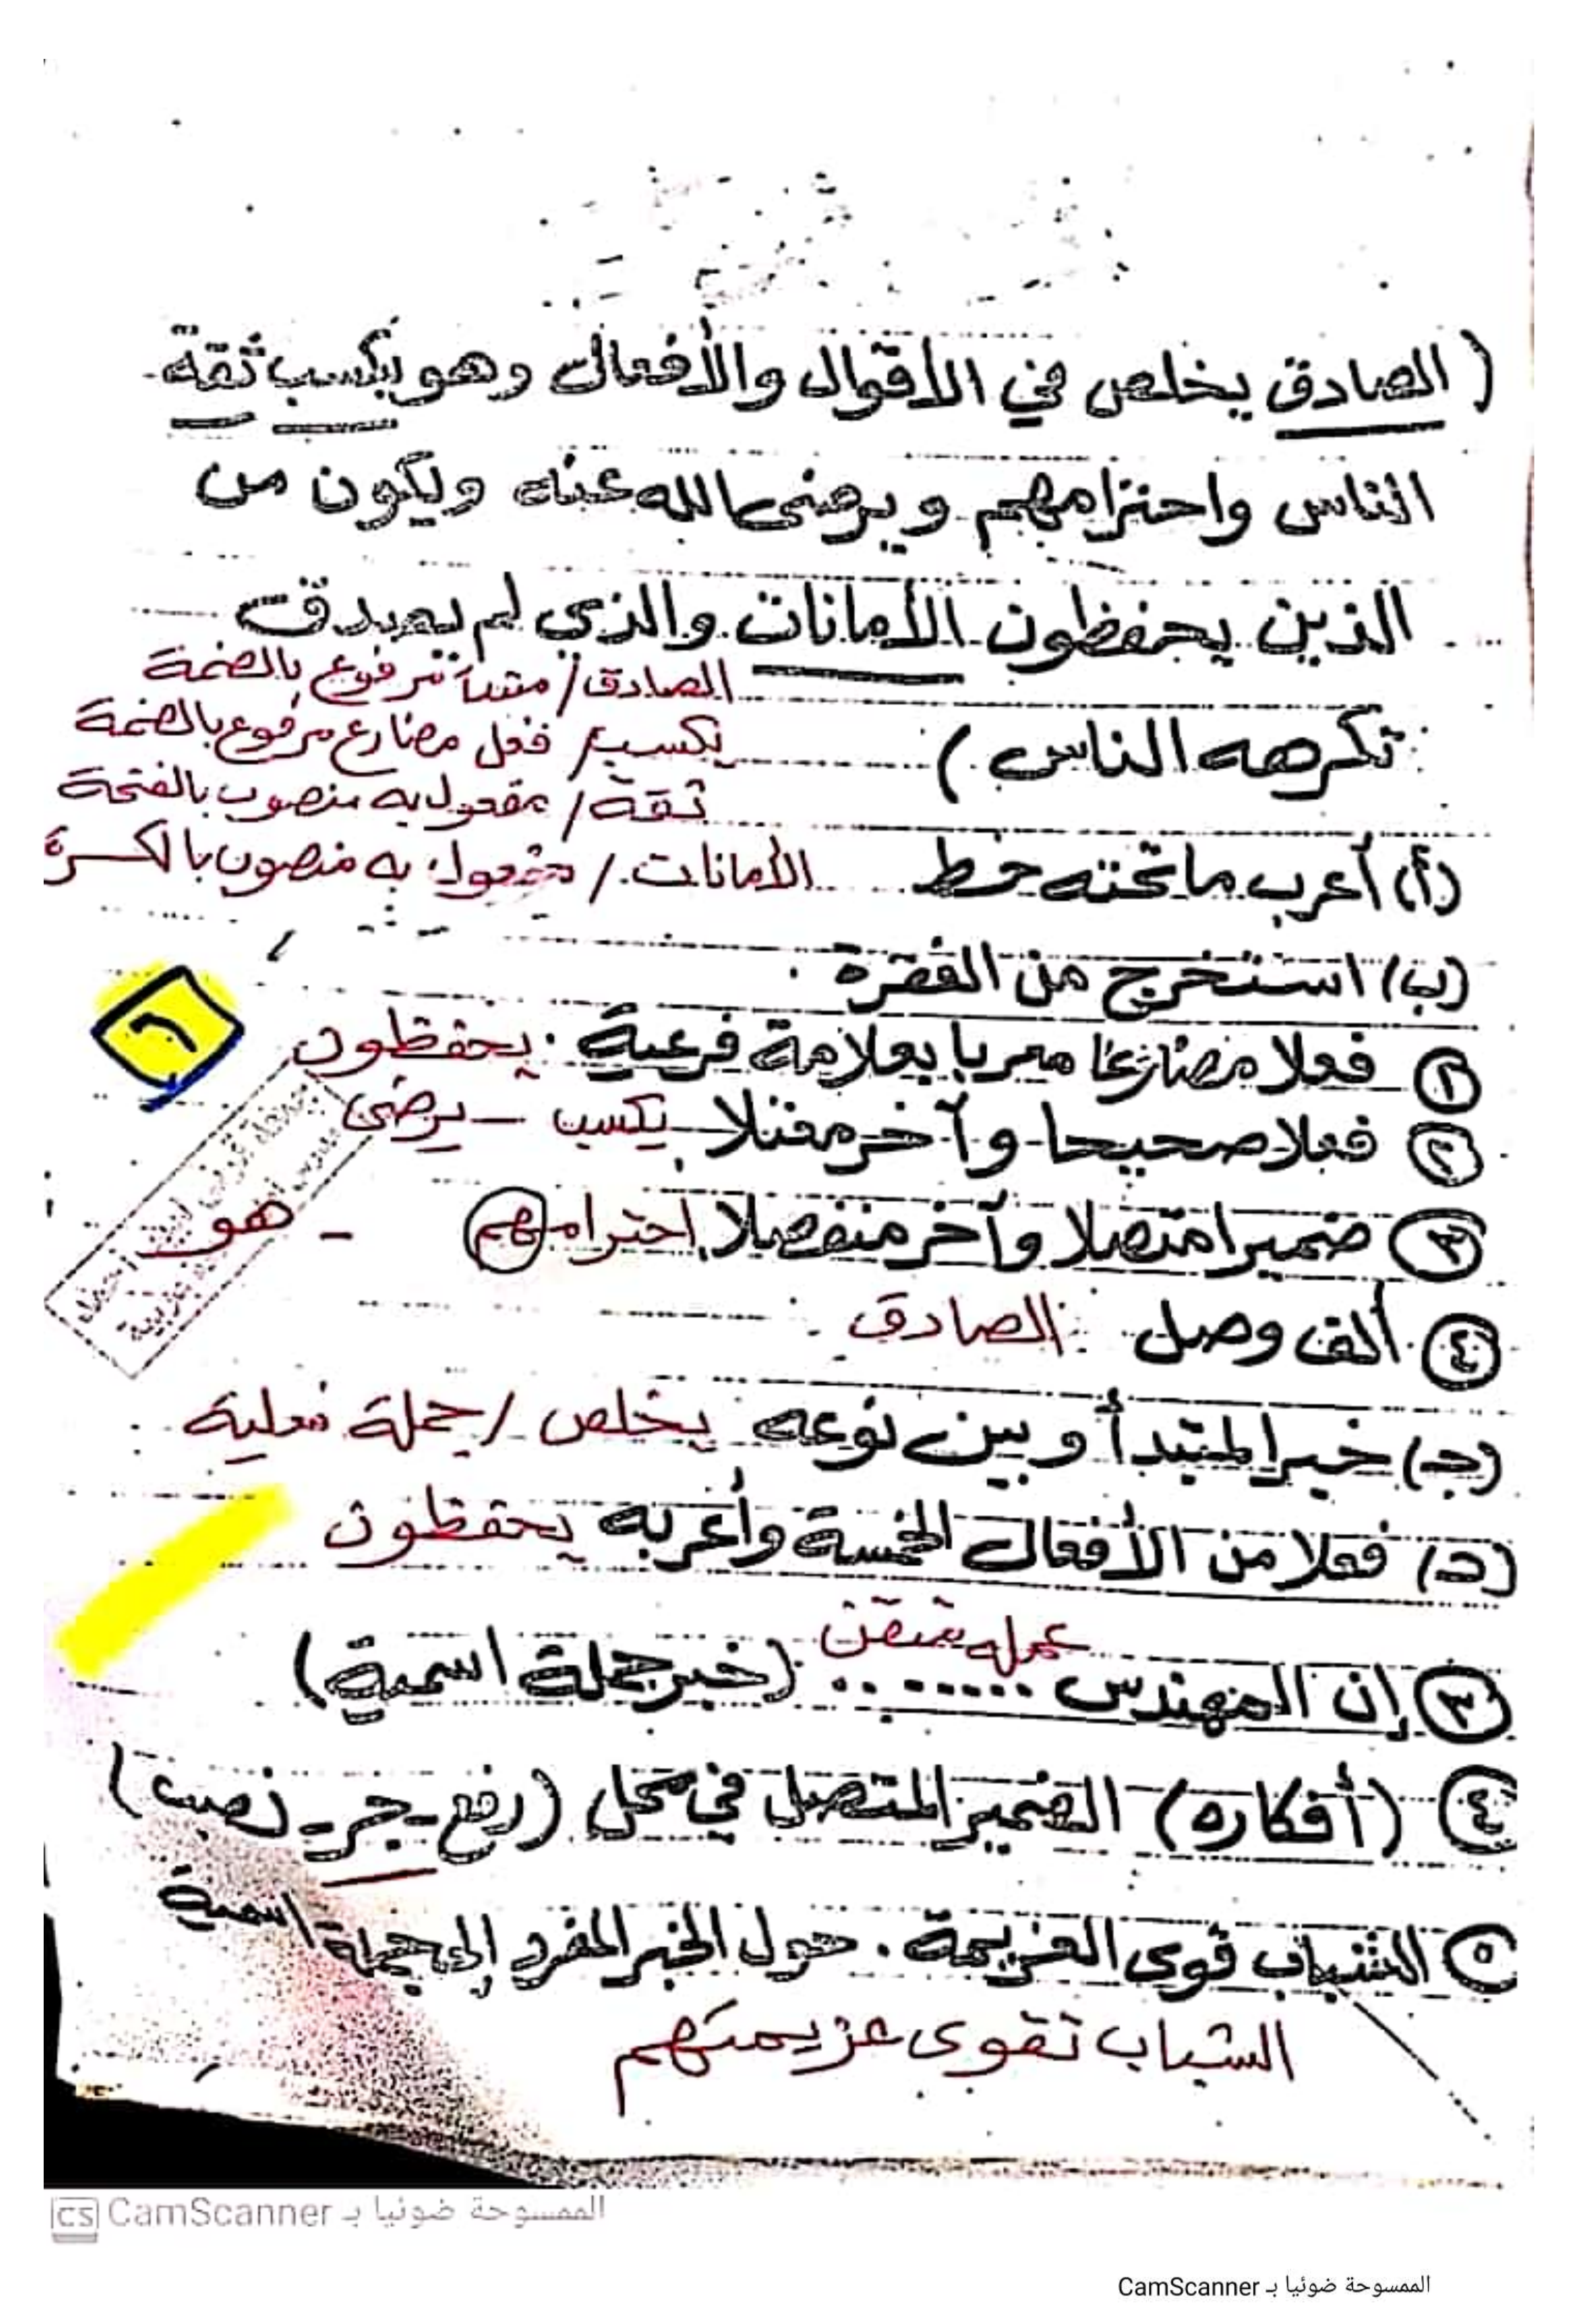 ( الصادق يخلص في الأقوال والأفعال وهو يكسب ثقة
الناس واحترامهم ويرضى الله عنه ويكون من
الذين يحفظون الأمانات والذي لم يصدق
تكرهه الناس )
الصادق / مبتدأ مرفوع بالضمة
يكسب / فعل مضارع مرفوع بالضمة
ثقة / مفعول به منصوب بالفتحة
(أ) أعرب ما تحته خط الأمانات / مفعول به منصوب بالكسرة
(ب) استخرج من الفقرة :
٦
١ فعلا مضارعا معربا بعلامة فرعية . يحفظون
٢ فعلا صحيحا وآخر معتلا يكسب - يرضى
٣ ضميرا متصلا وآخر منفصلا احترامهم - هو
٤ ألف وصل : الصادق
(ج) خبر المبتدأ وبين نوعه يخلص / جملة فعلية
(د) فعلا من الأفعال الخمسة وأعربه يحفظون
عمله متقن
٣ إن المهندس ......... (خبر جملة اسمية)
٤ (أفكاره) الضمير المتصل في محل (رفع - جر - نصب)
٥ الشباب قوى العزيمة . حول الخبر المفرد إلى جملة اسمية
الشباب تقوى عزيمتهم
CS CamScanner الممسوحة ضوئيا بـ
الممسوحة ضوئيا بـ CamScanner